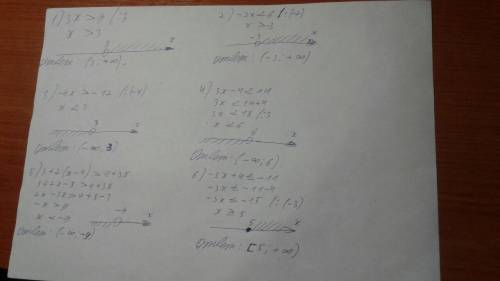 1) 3x > 9 /:3
x > 3
3 x
Ответ: (3; +∞).
2) -2x < 6 /:(-2)
x > -3
-3 x
Ответ: (-3; +∞)
3) -4x > -12 /:(-4)
x < 3
3 x
Ответ: (-∞, 3)
4) 3x - 4 < 14
3x < 14+4
3x < 18 /:3
x < 6
6 x
Ответ: (-∞; 6).
5)
-x > 9
x < -9
-9 x
Ответ: (-∞, -9)
6) -3x + 4 ≤ -11
-3x ≤ -11-4
-3x ≤ -15 /:(-3)
x ≥ 5
5 x
Ответ: [5; +∞)